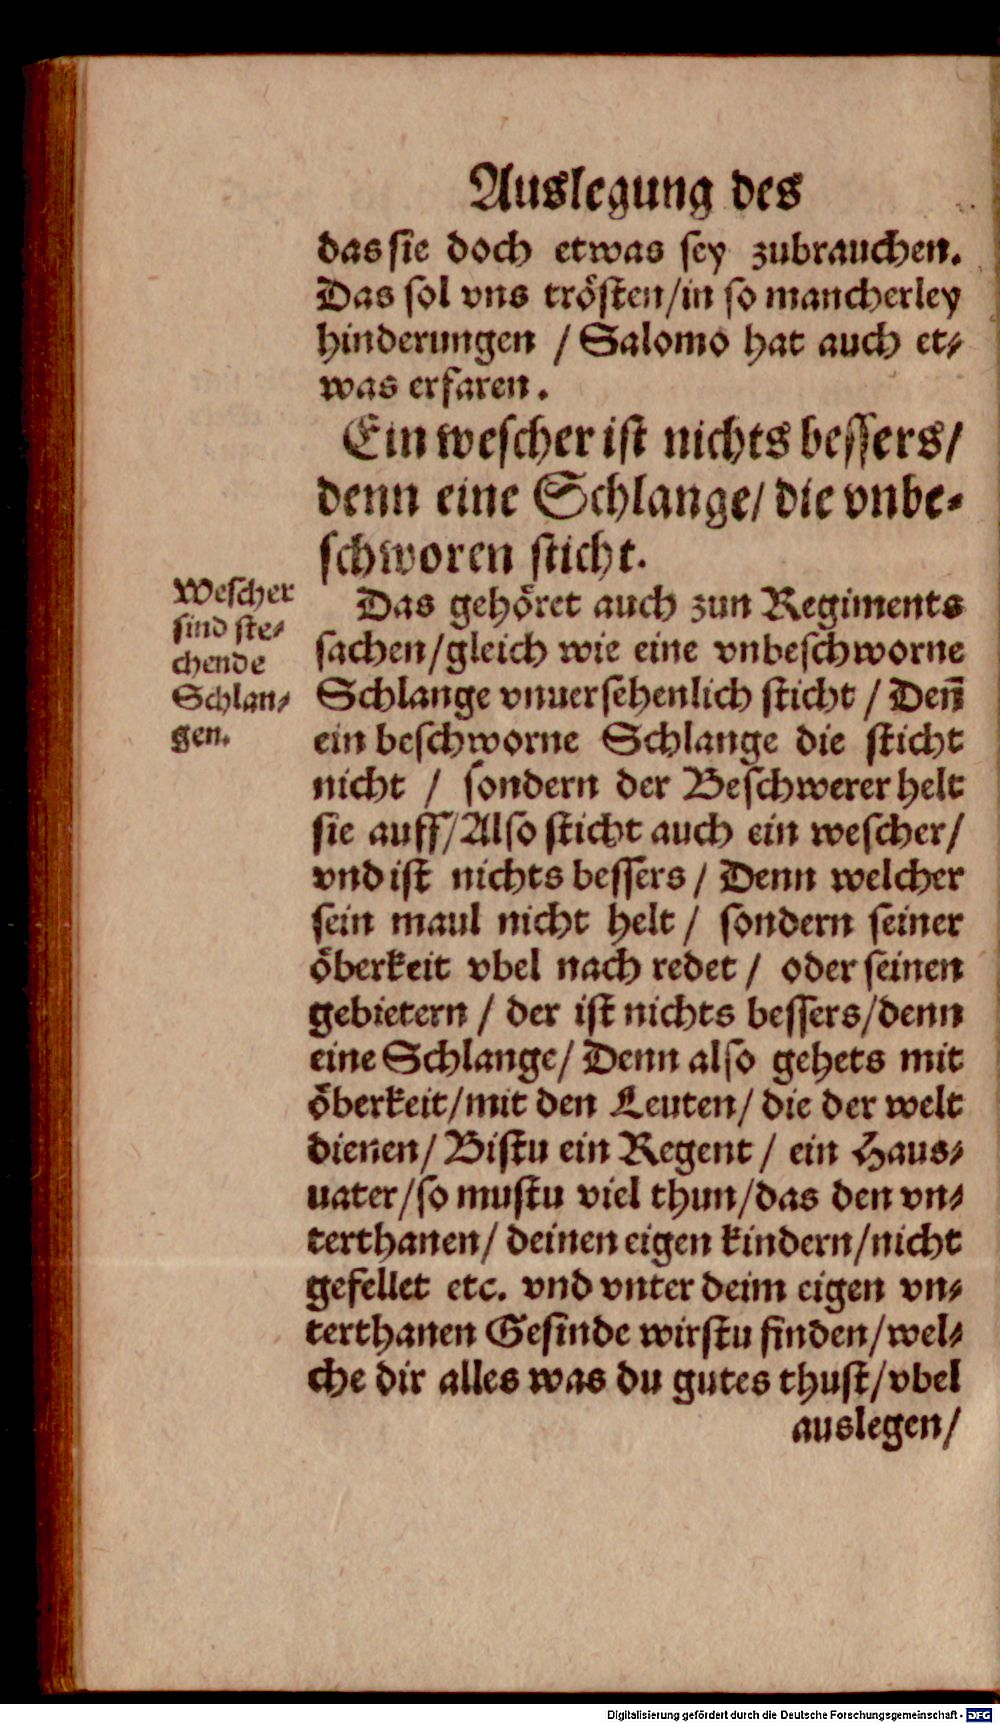 Auslegung des
das sie doch etwas sey zubrauchen.
Das sol vns trösten/in so mancherley
hinderungen / Salomo hat auch et⸗
was erfaren.
Ein wescher ist nichts bessers/
denn eine Schlange/ die vnbe⸗
schworen sticht.
Wescher
sind ste⸗
chende
Schlan⸗
gen.
Das gehöret auch zun Regiments
sachen/gleich wie eine vnbeschworne
Schlange vnuersehenlich sticht / Deñ
ein beschworne Schlange die sticht
nicht / sondern der Beschwerer helt
sie auff/Also sticht auch ein wescher/
vnd ist nichts bessers / Denn welcher
sein maul nicht helt / sondern seiner
öberkeit vbel nach redet / oder seinen
gebietern / der ist nichts bessers/denn
eine Schlange/ Denn also gehets mit
öberkeit/mit den Leuten/ die der welt
dienen/ Bistu ein Regent / ein Haus⸗
uater/so mustu viel thun/das den vn⸗
terthanen/ deinen eigen kindern/nicht
gefellet etc. vnd vnter deim eigen vn⸗
terthanen Gesinde wirstu finden/wel⸗
che dir alles was du gutes thust/vbel
auslegen/
Digitalisierung gefördert durch die Deutsche Forschungsgemeinschaft - DFG